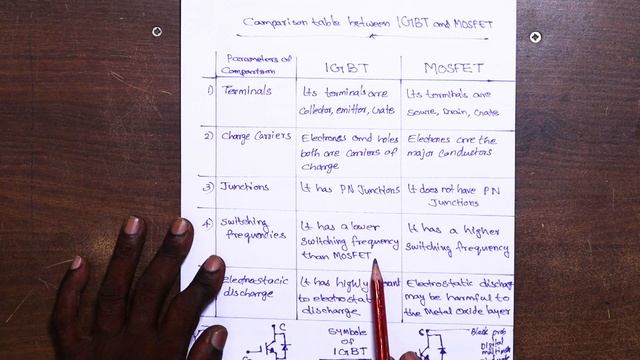 Comparison table between IGBT and MOSFET
Parameters of
Comparison
IGBT
MOSFET
1) Terminals
Its terminals are
Collector, emittor, Gate
Its terminals are
Source, Drain, Gate
2) Charge Carriers
Electrones and holes
both are carriers of
charge
Electrones are the
major conductors
3) Junctions
It has PN Junctions
It does not have PN
Junctions
4) Switching
frequencies
It has a lower
switching frequency
than MOSFET
It has a higher
switching frequency
Electrostacic
discharge
It has highly
to electrostatic
discharge
Electrostatic discharge
may be harmful to
the Metal oxide layer
C
SYMBOLS
OF
IGBT
G